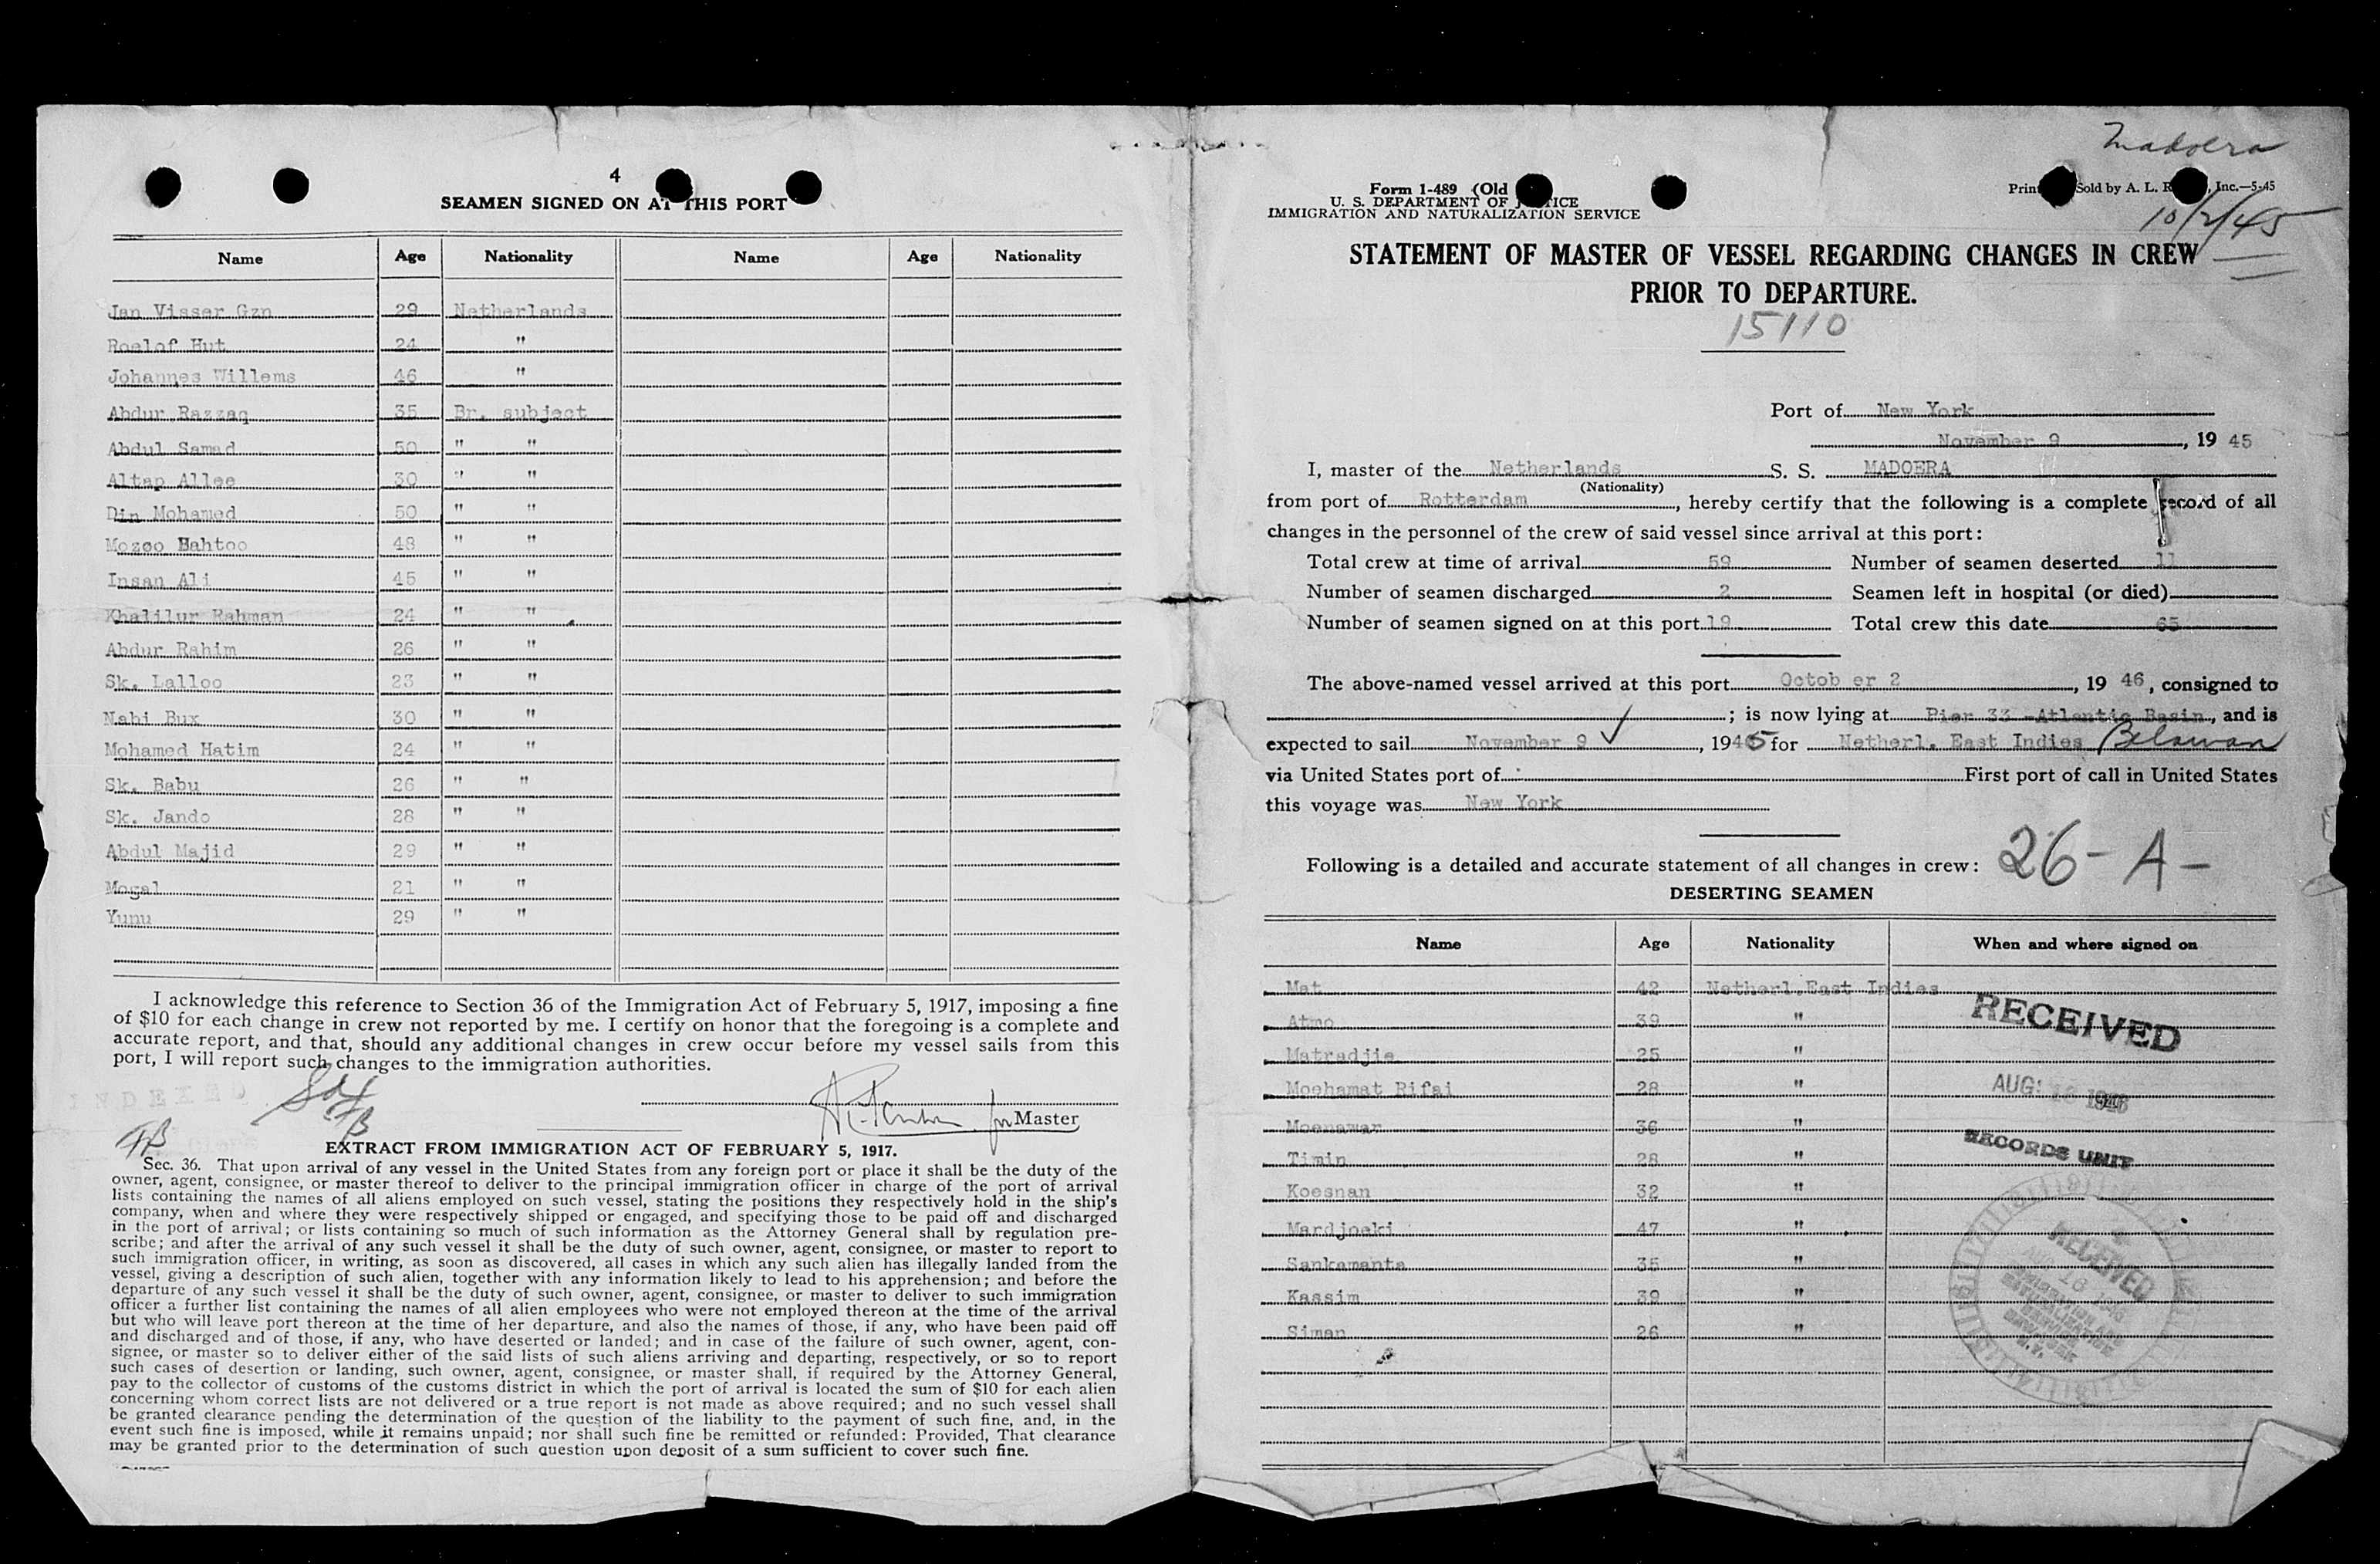 4
SEAMEN SIGNED ON AT THIS PORT
Name Age Nationality Name Age Nationality
Jan Visser Gzn 29 Netherlands
Roelof Hut 24 "
Johannes Willems 46 "
Abdur Razzaq 35 Br. subject
Abdul Samad 50 " "
Altap Allee 30 " "
Din Mohamed 50 " "
Mozoo Bahtoo 48 " "
Insan Ali 45 " "
Khalilur Rahman 24 " "
Abdur Rahim 26 " "
Sk. Lalloo 23 " "
Nabi Bux 30 " "
Mohamed Hatim 24 " "
Sk. Babu 26 " "
Sk. Jando 28 " "
Abdul Majid 29 " "
Mogal 21 " "
Yunu 29 " "
I acknowledge this reference to Section 36 of the Immigration Act of February 5, 1917, imposing a fine
of $10 for each change in crew not reported by me. I certify on honor that the foregoing is a complete and
accurate report, and that, should any additional changes in crew occur before my vessel sails from this
port, I will report such changes to the immigration authorities.
INDEXED
for Master
EXTRACT FROM IMMIGRATION ACT OF FEBRUARY 5, 1917.
Sec. 36. That upon arrival of any vessel in the United States from any foreign port or place it shall be the duty of the
owner, agent, consignee, or master thereof to deliver to the principal immigration officer in charge of the port of arrival
lists containing the names of all aliens employed on such vessel, stating the positions they respectively hold in the ship's
company, when and where they were respectively shipped or engaged, and specifying those to be paid off and discharged
in the port of arrival; or lists containing so much of such information as the Attorney General shall by regulation pre-
scribe; and after the arrival of any such vessel it shall be the duty of such owner, agent, consignee, or master to report to
such immigration officer, in writing, as soon as discovered, all cases in which any such alien has illegally landed from the
vessel, giving a description of such alien, together with any information likely to lead to his apprehension; and before the
departure of any such vessel it shall be the duty of such owner, agent, consignee, or master to deliver to such immigration
officer a further list containing the names of all alien employees who were not employed thereon at the time of the arrival
but who will leave port thereon at the time of her departure, and also the names of those, if any, who have been paid off
and discharged and of those, if any, who have deserted or landed; and in case of the failure of such owner, agent, con-
signee, or master so to deliver either of the said lists of such aliens arriving and departing, respectively, or so to report
such cases of desertion or landing, such owner, agent, consignee, or master shall, if required by the Attorney General,
pay to the collector of customs of the customs district in which the port of arrival is located the sum of $10 for each alien
concerning whom correct lists are not delivered or a true report is not made as above required; and no such vessel shall
be granted clearance pending the determination of the question of the liability to the payment of such fine, and, in the
event such fine is imposed, while it remains unpaid; nor shall such fine be remitted or refunded: Provided, That clearance
may be granted prior to the determination of such question upon deposit of a sum sufficient to cover such fine.
Madoera
Form 1-489 (Old
U. S. DEPARTMENT OF JUSTICE
IMMIGRATION AND NATURALIZATION SERVICE
Sold by A. L. Inc.—5-45
10/2/45
STATEMENT OF MASTER OF VESSEL REGARDING CHANGES IN CREW
PRIOR TO DEPARTURE.
15110
Port of New York
November 9, 19 45
I, master of the Netherlands S. S. MADOERA
(Nationality)
from port of Rotterdam, hereby certify that the following is a complete record of all
changes in the personnel of the crew of said vessel since arrival at this port:
Total crew at time of arrival 59 Number of seamen deserted 11
Number of seamen discharged 2 Seamen left in hospital (or died)
Number of seamen signed on at this port 19 Total crew this date 65
The above-named vessel arrived at this port Octob er 2, 19 46, consigned to
; is now lying at Pier 33 -Atlantic Basin, and is
expected to sail November 9 ✓, 1945 for Netherl. East Indies Belawan
via United States port of First port of call in United States
this voyage was New York
Following is a detailed and accurate statement of all changes in crew: 26-A-
DESERTING SEAMEN
Name Age Nationality When and where signed on
Mat 42 Netherl.East Indies
Atmo 39 "
Matradjie 25 "
Moehamat Rifai 28 "
Moenawar 36 "
Timin 28 "
Koesnan 32 "
Mardjoeki 47 "
Sankamanta 35 "
Kassim 39 "
Siman 26 "
RECEIVED
AUG 16 1946
RECORDS UNIT
RECEIVED